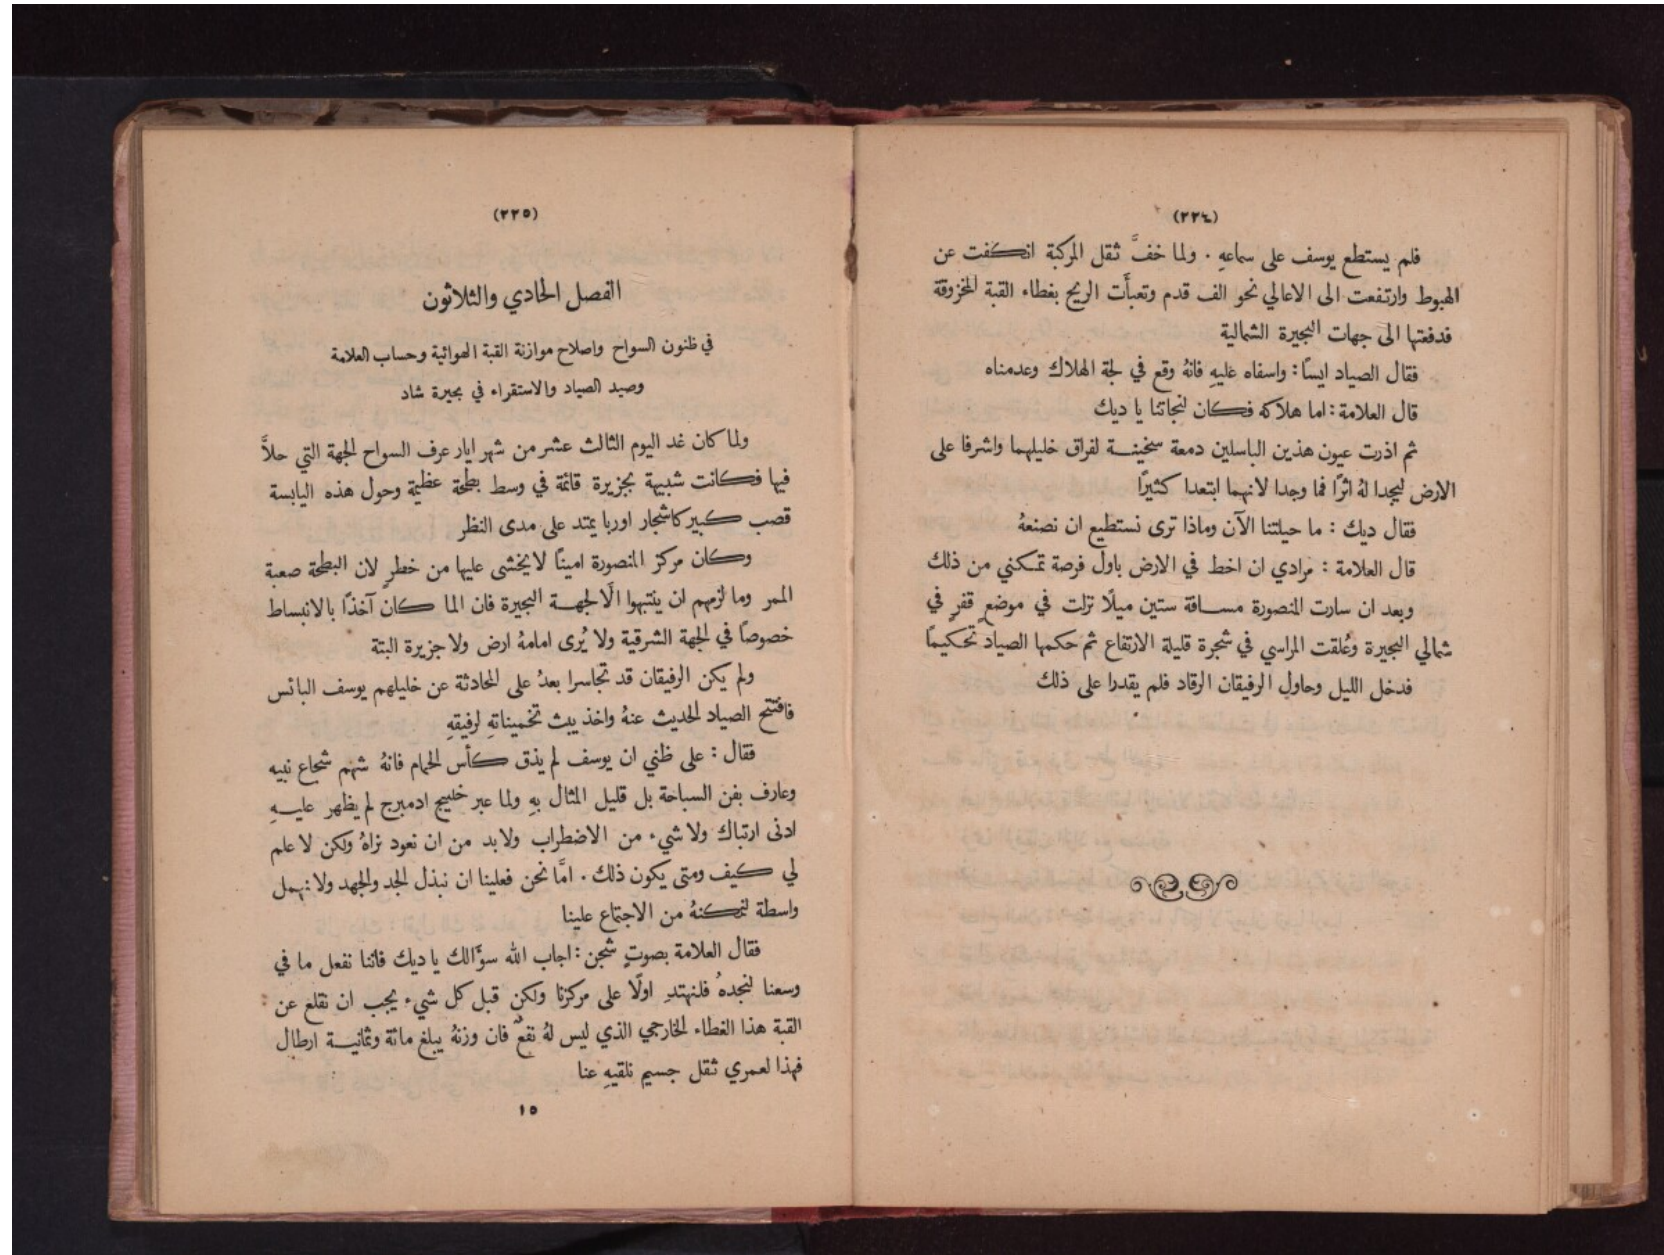 (٢٢٤)
فلم يستطع يوسف على سماعهِ . ولما خفَّ ثقل المركبة انكفت عن
الهبوط وارتفعت الى الاعالي نحو الف قدم وتعبأَت الريح بغطاء القبة المخزوقة
فدفعتها الى جهات البحيرة الشمالية
فقال الصياد ايسًا : واسفاه عليهِ فانهُ وقع في لجة الهلاك وعدمناه
قال العلامة : اما هلاكه فكان لنجاتنا يا ديك
ثم اذرت عيون هذين الباسلين دمعة سخينة لفراق خليلهما واشرفا على
الارض ليجدا لهُ اثرًا فما وجدا لانهما ابتعدا كثيرًا
فقال ديك : ما حيلتنا الآن وماذا ترى نستطيع ان نصنعهُ
قال العلامة : مرادي ان احط في الارض باول فرصة تمكنني من ذلك
وبعد ان سارت المنصورة مسافة ستين ميلًا نزلت في موضعٍ قفرٍ في
شمالي البحيرة وعُلقت المراسي في شجرة قليلة الارتفاع ثم حكمها الصياد تحكيمًا
فدخل الليل وحاول الرفيقان الرقاد فلم يقدرا على ذلك
(٢٢٥)
الفصل الحادي والثلاثون
في ظنون السواح واصلاح موازنة القبة الهوائية وحساب العلامة
وصيد الصياد والاستقراء في بحيرة شاد
ولما كان غد اليوم الثالث عشر من شهر ايار عرف السواح الجهة التي حلاَّ
فيها فكانت شبيهة بجزيرة قائمة في وسط بطحة عظيمة وحول هذه اليابسة
قصب كبير كاشجار اوربا يمتد على مدى النظر
وكان مركز المنصورة امينًا لا يخشى عليها من خطرٍ لان البطحة صعبة
الممر وما لزمهم ان ينتبهوا الَّا لجهة البحيرة فان الما كان آخذًا بالانبساط
خصوصًا في الجهة الشرقية ولا يُرى امامهُ ارض ولا جزيرة البتة
ولم يكن الرفيقان قد تجاسرا بعدُ على المحادثة عن خليلهم يوسف البائس
فافتتح الصياد الحديث عنهُ واخذ يبث تخميناتهِ لرفيقهِ
فقال : على ظني ان يوسف لم يذق كأس الحمام فانهُ شهم شجاع نبيه
وعارف بفن السباحة بل قليل المثال بهِ ولما عبر خليج ادمبرج لم يظهر عليهِ
ادنى ارتباك ولا شيء من الاضطراب ولا بد من ان نعود نراهُ ولكن لا علم
لي كيف ومتى يكون ذلك . امَّا نحن فعلينا ان نبذل الجد والجهد ولا نهمل
واسطة لنمكنهُ من الاجتماع علينا
فقال العلامة بصوتٍ شجن : اجاب الله سؤَالك يا ديك فاننا نفعل ما في
وسعنا لنجدهُ فلنهتدِ اولًا على مركزنا ولكن قبل كل شيء يجب ان نقلع عن
القبة هذا الغطاء الخارجي الذي ليس لهُ نفعٌ فان وزنهُ يبلغ مائة وثمانية ارطال
فهذا لعمري ثقل جسيم نلقيهِ عنا
١٥